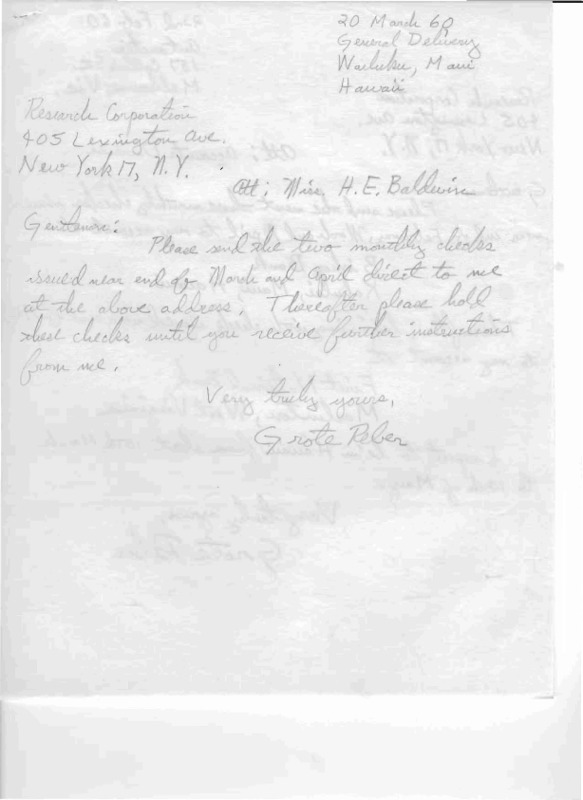 20 March 60
General Delivery
Wailuku, Maui
Hawaii
Research Corporation
405 Lexington Ave.
New York 17, N.Y.
Att: Miss. H.E. Baldwin
Gentlemen:
Please send the two monthly checks
issued near end of March and April direct to me
at the above address. Thereafter please hold
these checks until you receive further instructions
from me.
Very truly yours,
Grote Reber